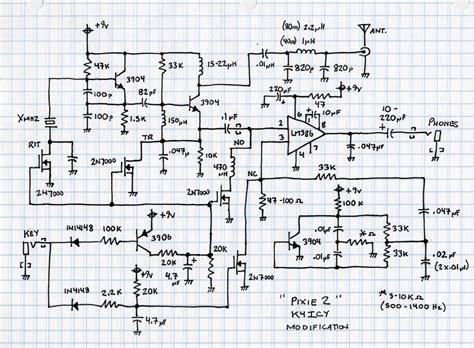 +9v
47K
3904
33K
15-22µH
(80m) 2.2µH
(40m) 1µH
ANT.
.01µH
820p
820p
100p
82pF
3904
220µF
47
10µF
10-
220µF
PHONES
XMIT2
100p
1.5K
150µH
.1µF
LM386
2
3
4
6
8
RIT
TR
NO
.047µ
10K
470
µH
2N7000
2N7000
2N7000
NC
33K
.047µF
KEY
1N4148
100K
+9v
3906
20K
4.7
µF
20K
2N7000
47-100Ω
+9v
100K
.01µF
3904
*Ω
33K
33K
.01µF
.047µF
.02µF
(2x.01µF)
1N4148
2.2K
+9v
20K
4.7µF
"PIXIE 2"
K4ICY
MODIFICATION
* 3-10KΩ
(500-1400 Hz)